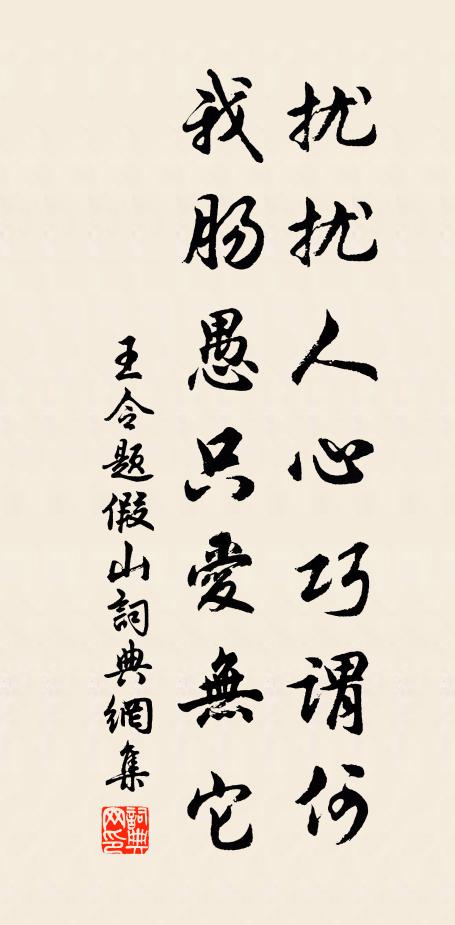 扰扰人心巧谓何
我肠愚只爱無它
王令题假山詞典網集
詞典网印